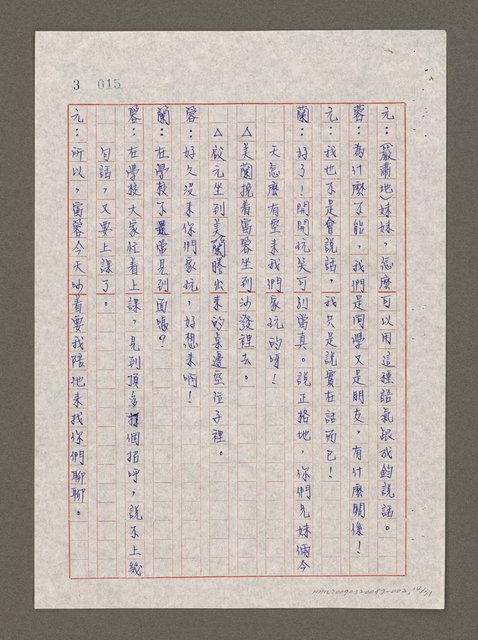 3 015
元：(嚴肅地)妹妹，怎麼可以用這種語氣跟成鈞說話。
蓉：為什麼不能，我們是同學又是朋友，有什麼關係！
元：我也不是會說話，我只是說實在話而已！
蘭：好了！開開玩笑可別當真。說正格地，你們兄妹倆今
天怎麼有空來我們家玩的呀！
△美蘭挽着富蓉坐到沙發裡去。
△啟元坐到美蘭騰出來的桌邊空位子裡。
蓉：好久沒來你們家玩，好想來啊！
蘭：在學校不是常見到面嗎？
蓉：在學校大家忙着上課，見到頂多打個招呼，說不上幾
句話，又要上課了。
元：所以，富蓉今天吵着要我陪她來找你們聊聊。